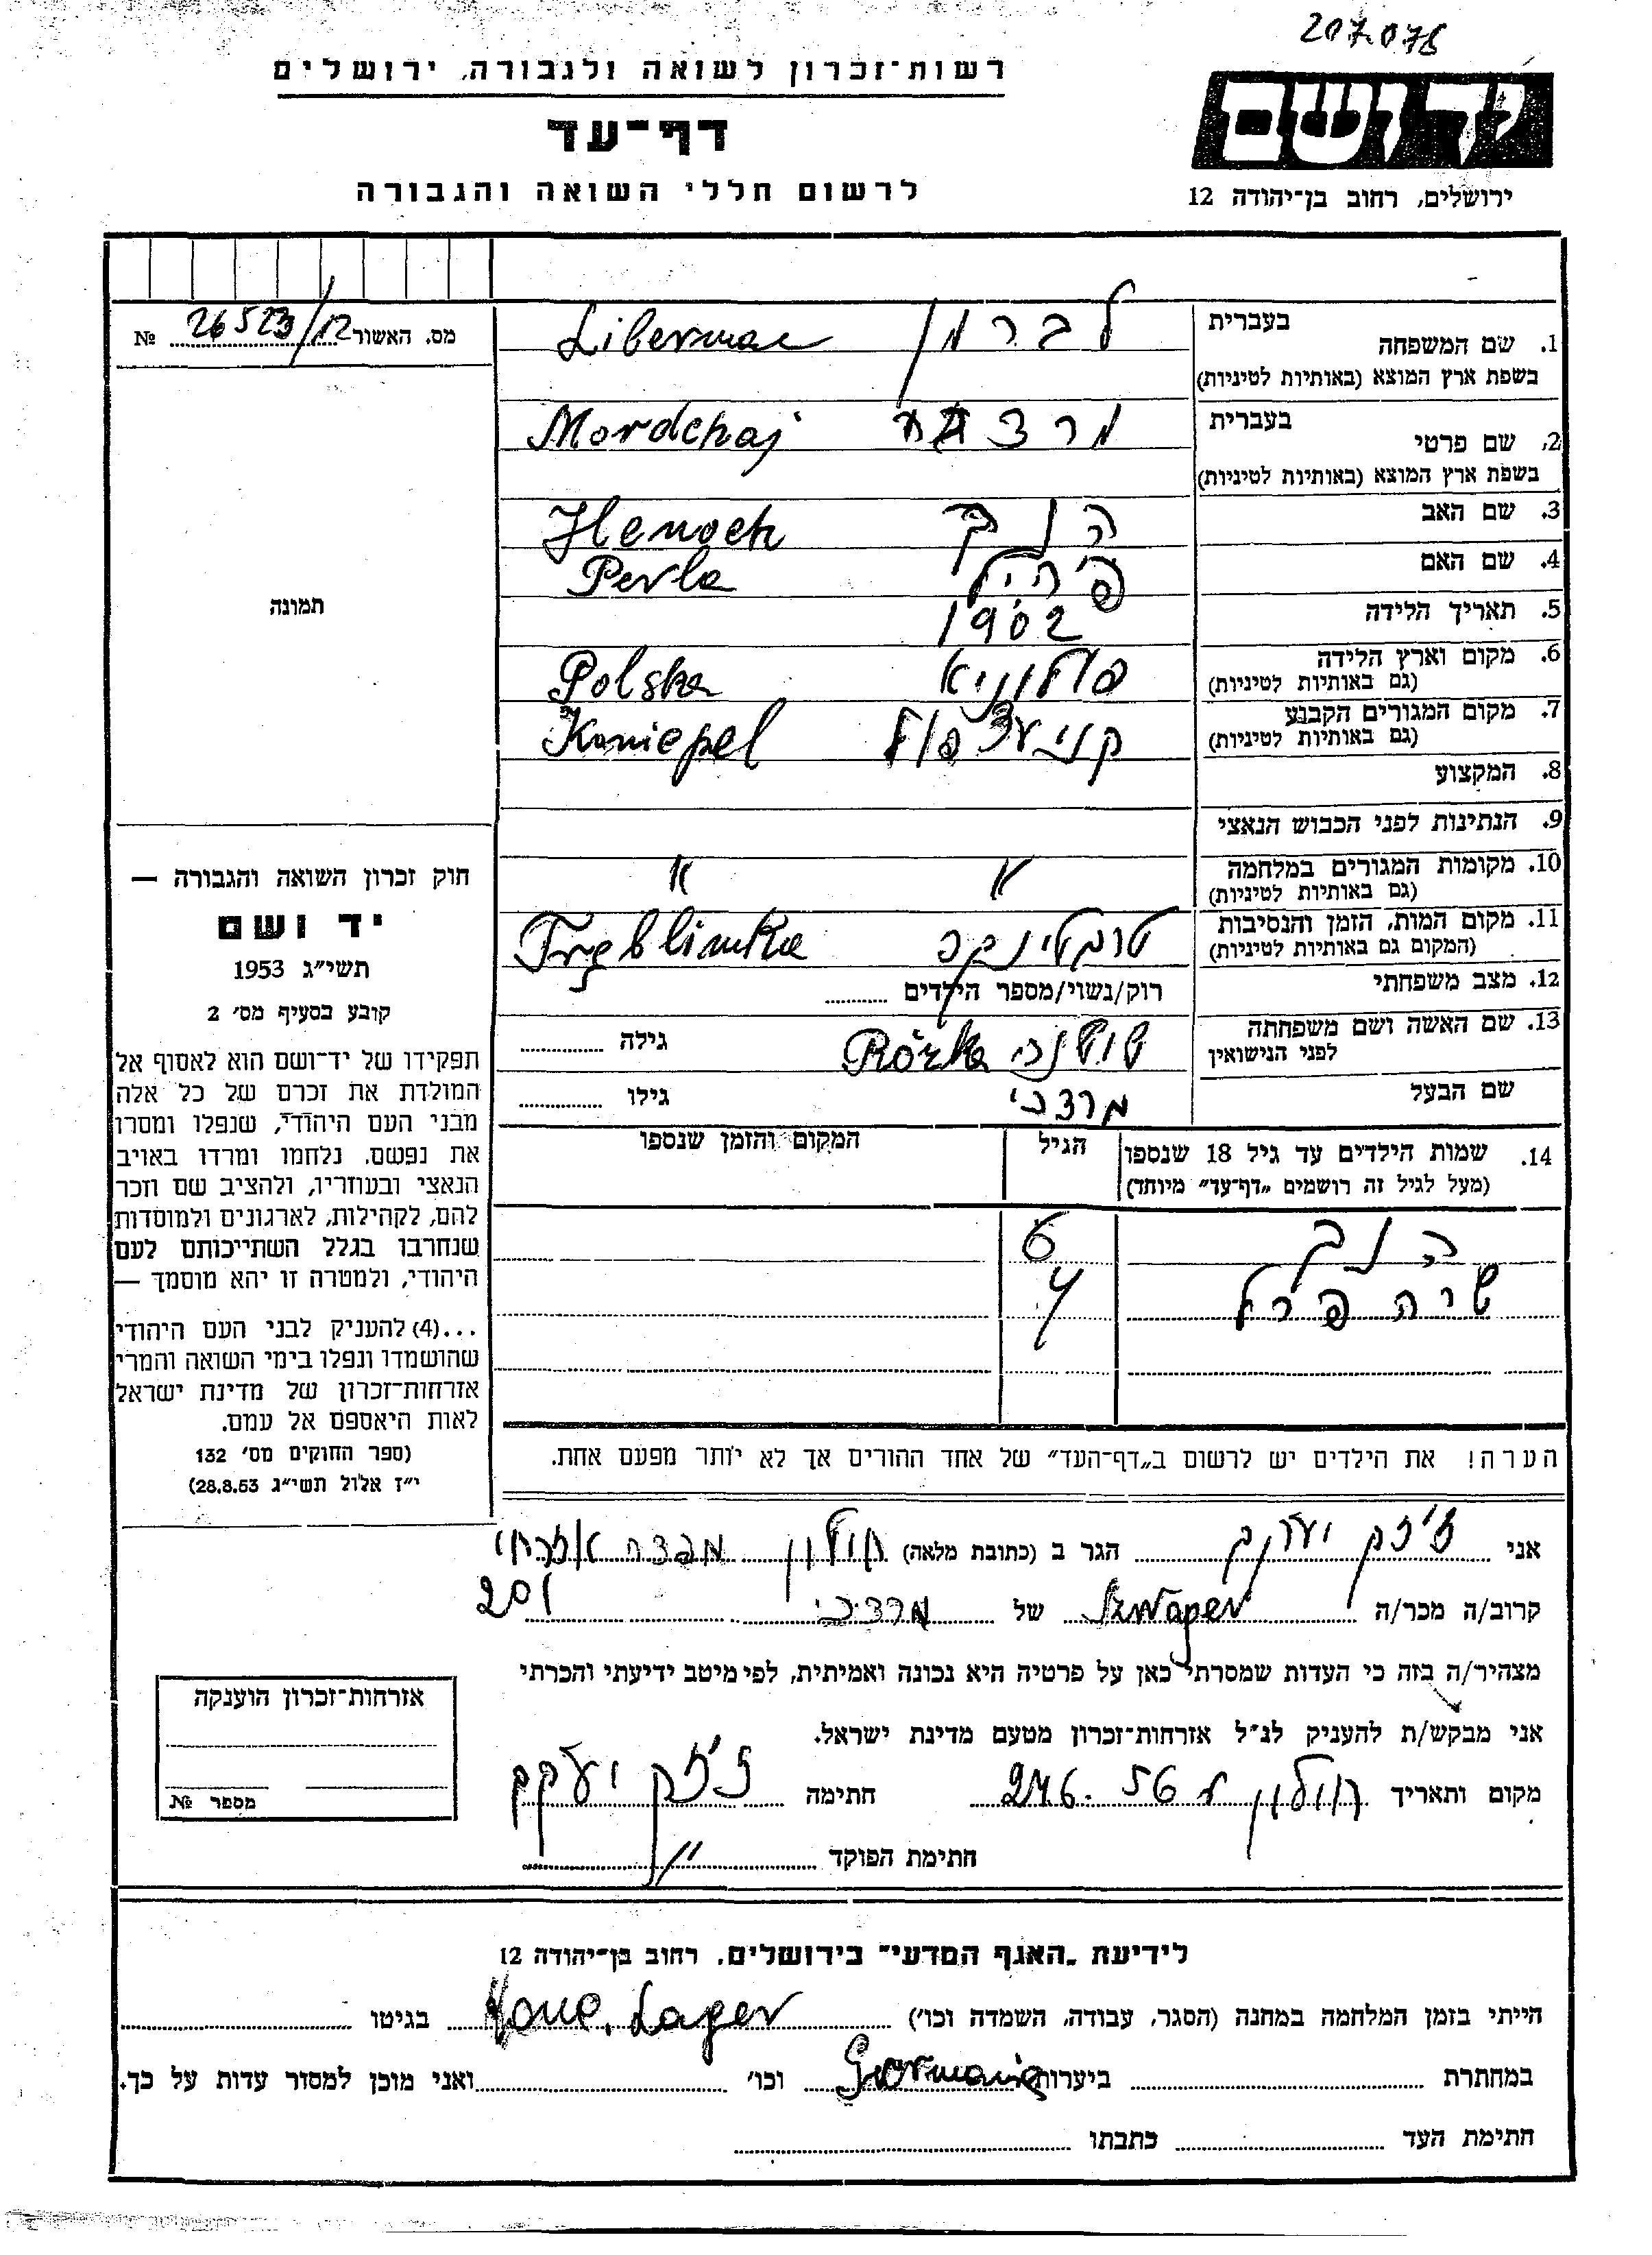 207078
רשות־זכרון לשואה ולגבורה, ירושלים
דף־עד
לרשום חללי השואה והגבורה
יד ושם
ירושלים, רחוב בן־יהודה 12
מס. האשור 26523/12 №
1. שם המשפחה בעברית לברמן
בשפת ארץ המוצא (באותיות לטיניות) Liberman
2. שם פרטי בעברית
בשפת ארץ המוצא (באותיות לטיניות) Mordchaj
3. שם האב הנך Henoch
4. שם האם Perla
5. תאריך הלידה 1902
6. מקום וארץ הלידה פולוניא Polska
(גם באותיות לטיניות)
7. מקום המגורים הקבוע קניעצפול Koniepel
(גם באותיות לטיניות)
8. המקצוע
9. הנתינות לפני הכבוש הנאצי
10. מקומות המגורים במלחמה " "
(גם באותיות לטיניות)
11. מקום המות, הזמן והנסיבות טרבלינקה Treblinka
(המקום גם באותיות לטיניות)
12. מצב משפחתי רוק/נשוי/מספר הילדים
13. שם האשה ושם משפחתה שושנה Rózka גילה
לפני הנישואין
שם הבעל מרדכי גילו
14. שמות הילדים עד גיל 18 שנספו הגיל המקום והזמן שנספו
(מעל לגיל זה רושמים "דף־עד" מיוחד)
הנך 6
שרה פרל 4
תמונה
חוק זכרון השואה והגבורה —
יד ושם
תשי"ג 1953
קובע בסעיף מס' 2
תפקידו של יד־ושם הוא לאסוף אל
המולדת את זכרם של כל אלה
מבני העם היהודי, שנפלו ומסרו
את נפשם, נלחמו ומרדו באויב
הנאצי ובעוזריו, ולהציב שם וזכר
להם, לקהילות, לארגונים ולמוסדות
שנחרבו בגלל השתייכותם לעם
היהודי, ולמטרה זו יהא מוסמך —
...(4) להעניק לבני העם היהודי
שהושמדו ונפלו בימי השואה והמרי
אזרחות־זכרון של מדינת ישראל
לאות היאספם אל עמם.
(ספר החוקים מס' 132
י"ז אלול תשי"ג 28.8.53)
הערה! את הילדים יש לרשום ב"דף־העד" של אחד ההורים אך לא יותר מפעם אחת.
אני יעקב הגר ב (כתובת מלאה) חולון אזרחי
קרוב/ה מכר/ה Szwager של מרדכי 201
מצהיר/ה בזה כי העדות שמסרתי כאן על פרטיה היא נכונה ואמיתית, לפי מיטב ידיעתי והכרתי
אני מבקש/ת להעניק לנ"ל אזרחות־זכרון מטעם מדינת ישראל.
מקום ותאריך חולון חתימה יעקב
חתימת הפוקד
אזרחות־זכרון הוענקה
מספר №
לידיעת "האגף המדעי" בירושלים, רחוב בן־יהודה 12
הייתי בזמן המלחמה במחנה (הסגר, עבודה, השמדה וכו') Lager בגיטו
במחתרת ביערות Germania וכו' ואני מוכן למסור עדות על כך.
חתימת העד כתבתו